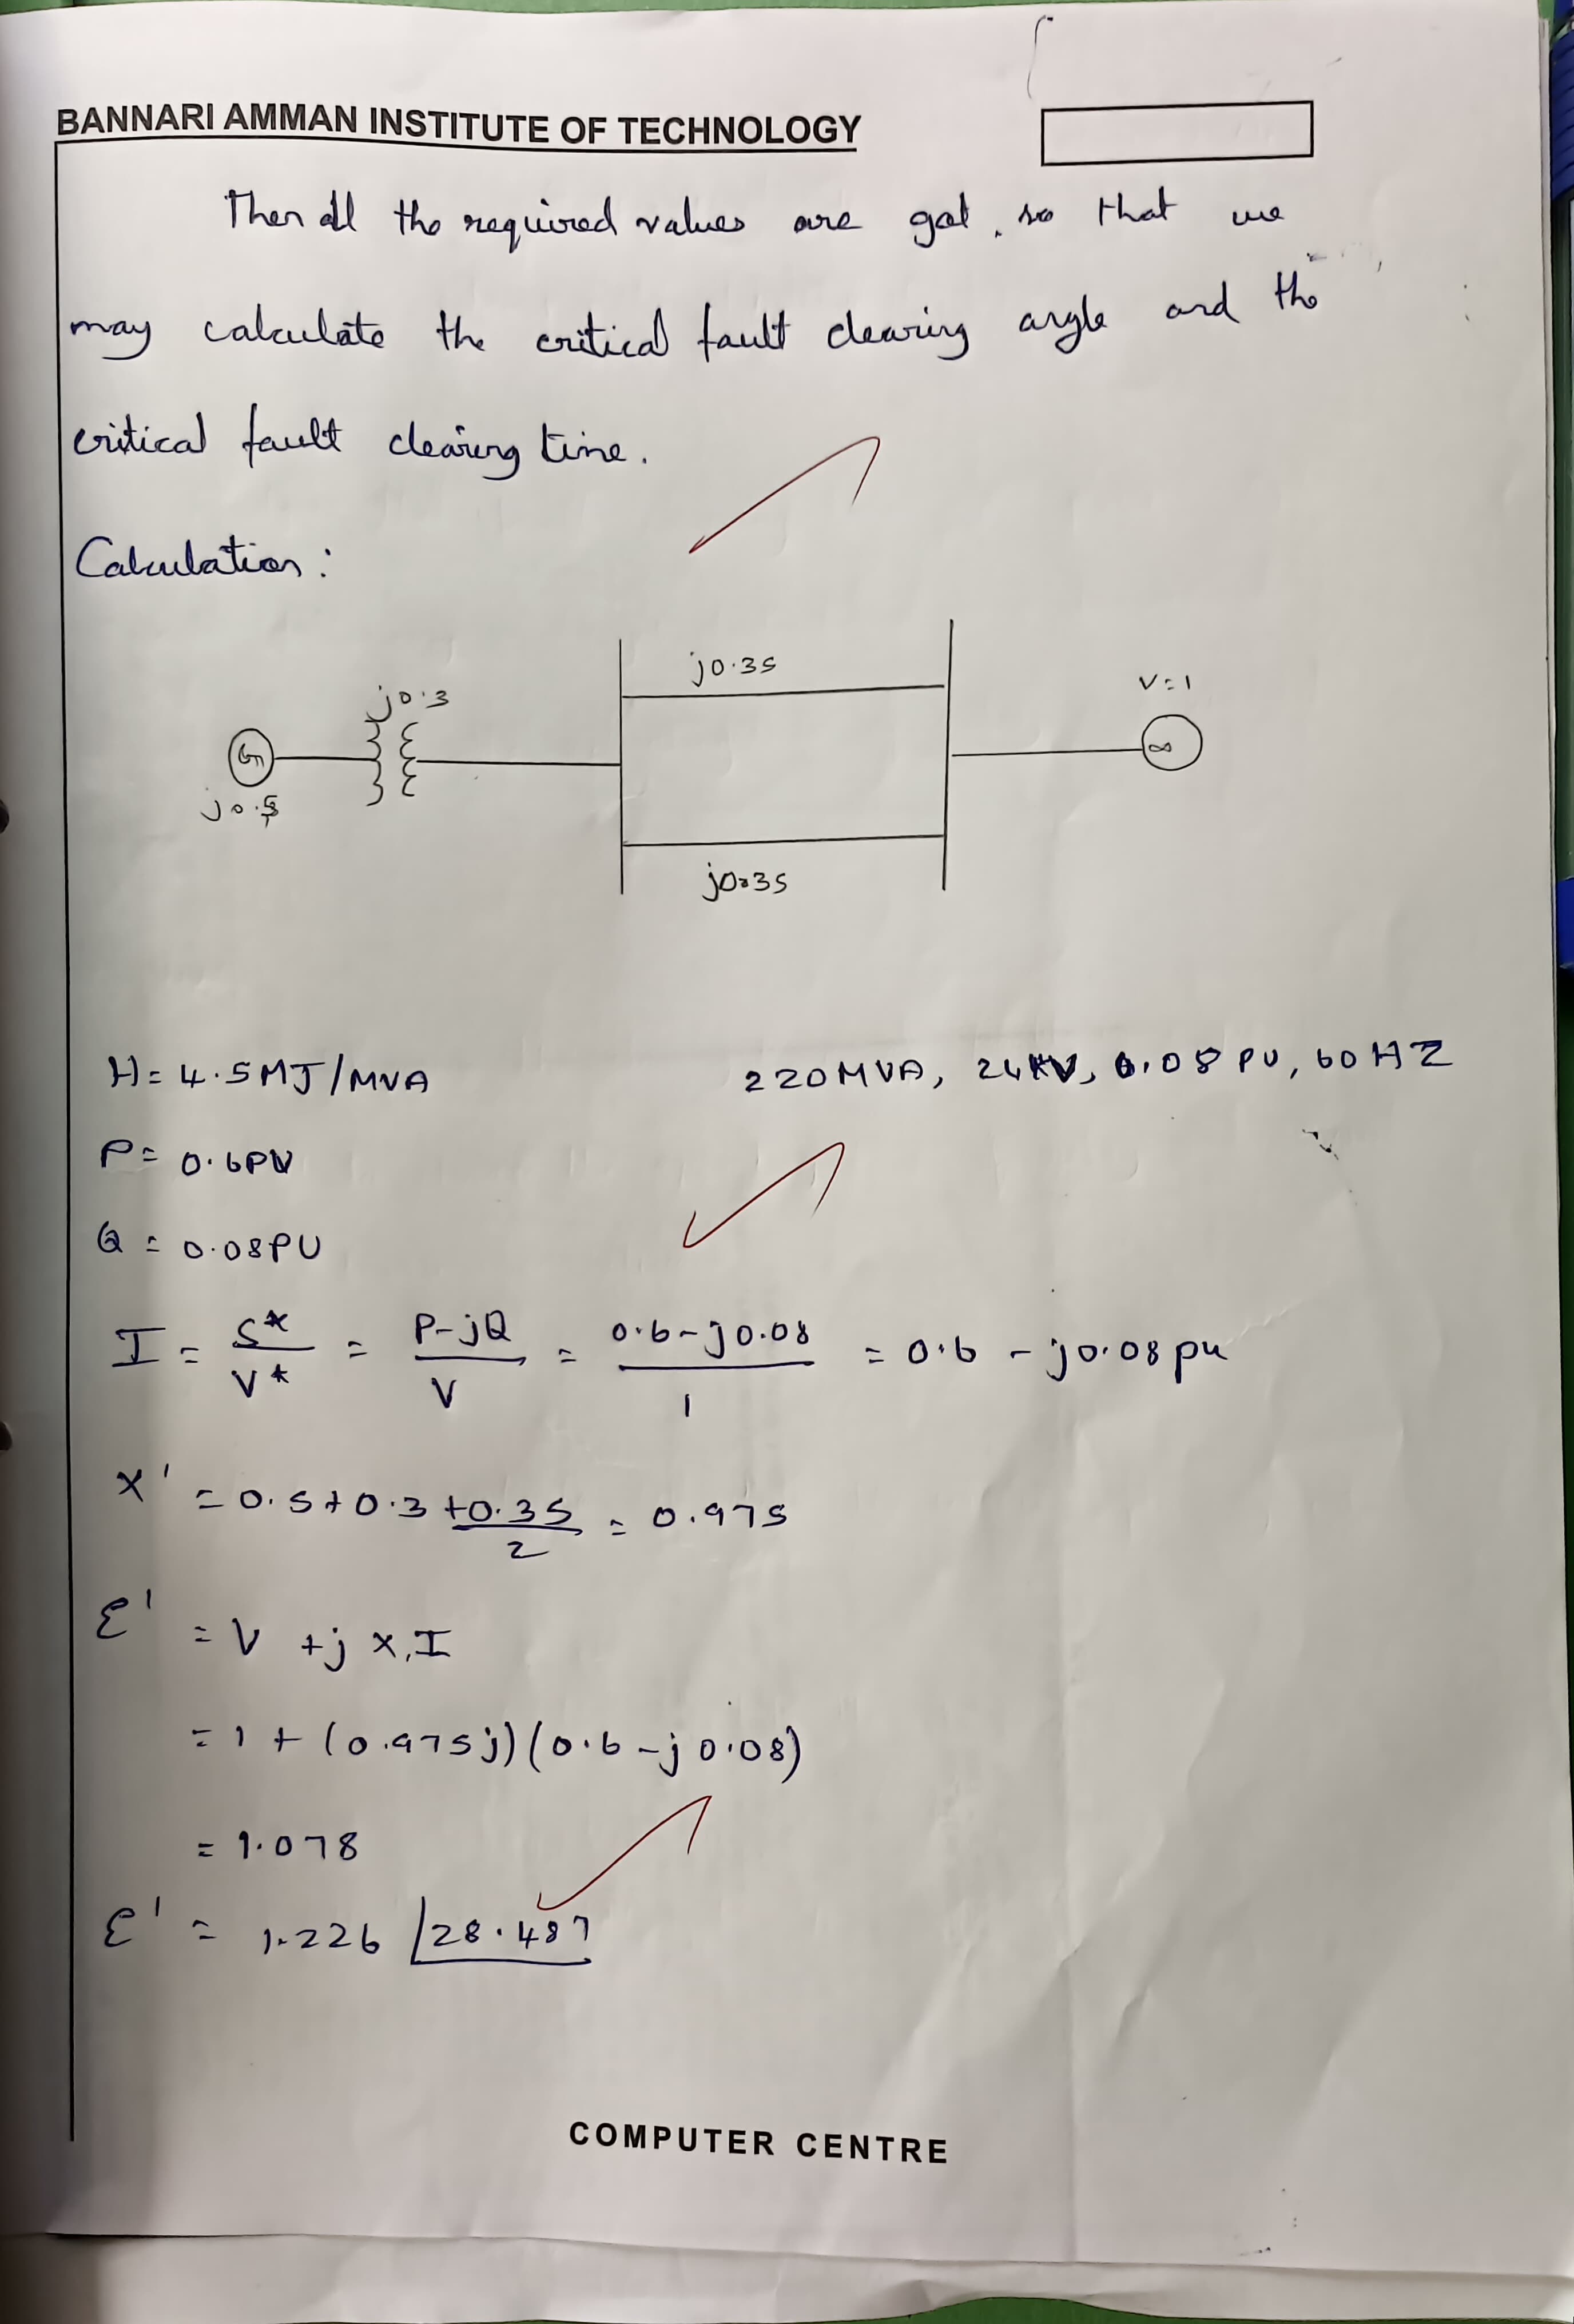 BANNARI AMMAN INSTITUTE OF TECHNOLOGY
Then all the required values are got, so that we
may calculate the critical fault clearing angle and the
critical fault clearing time.
Calculation:
j0.35
j0.3
V=1
G
∞
j0.5
j0.35
H= 4.5MJ/MVA 220MVA, 24KV, 0.08 PU, 60 HZ
P= 0.6PU
Q = 0.08PU
I = S*/V* = P-jQ/V = 0.6-j0.08/1 = 0.6 - j0.08 pu
X' = 0.5+0.3+0.35/2 = 0.975
E' = V + j X,I
= 1 + (0.975j)(0.6-j0.08)
= 1.078
E' = 1.226 ∠28.487
COMPUTER CENTRE